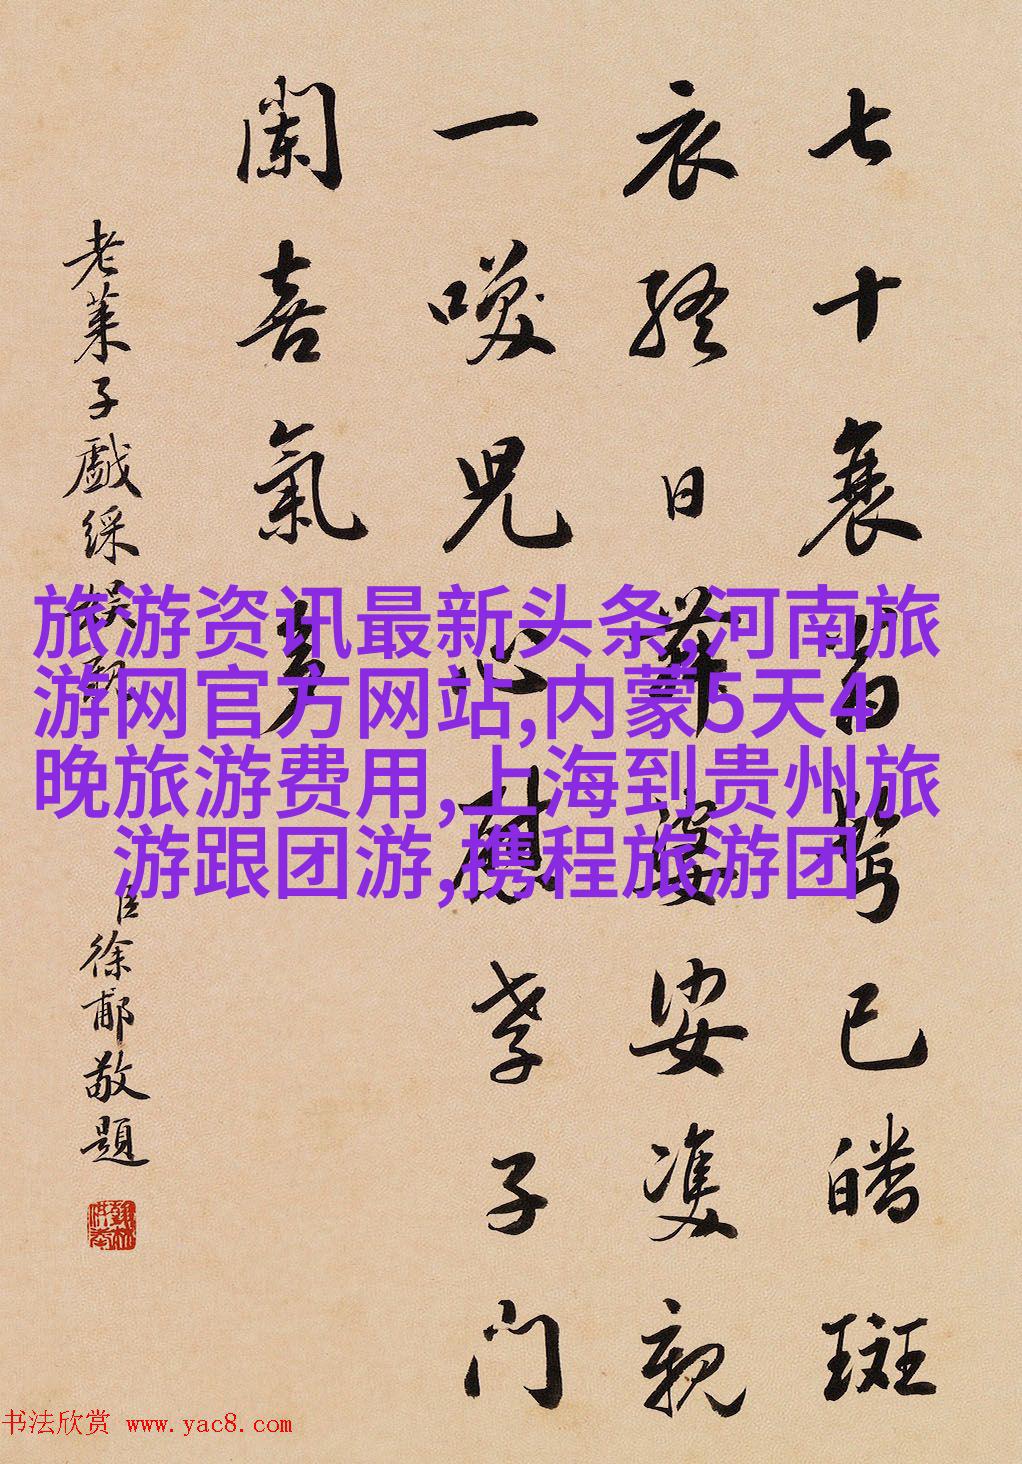 七十衰已皤斑
衣終日舞婆娑雙親
一兒心慰孝子門
闌喜氣多
老萊子戲綵娛親
臣徐郙敬題
旅游资讯最新头条,河南旅
游网官方网站,内蒙5天4
晚旅游费用,上海到贵州旅
游跟团游,携程旅游团
书法欣赏 www.yac8.com